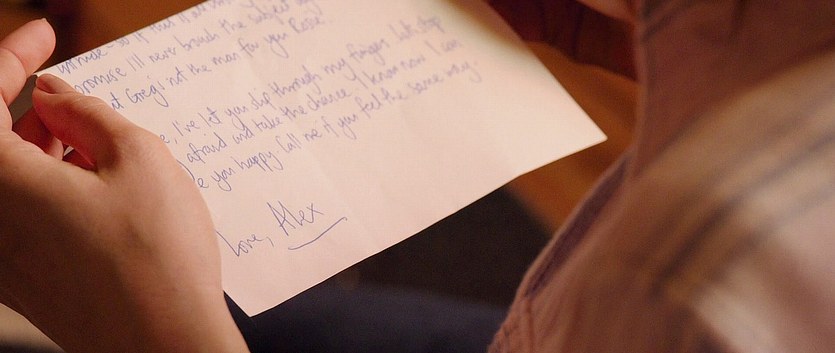 promise I'll never broach the subject ag
at Greg's not the man for you Rosie.
e, I've let you slip through my fingers. Let's stop
afraid and take the chance. I know now I can
e you happy. Call me if you feel the same way.
Love, Alex